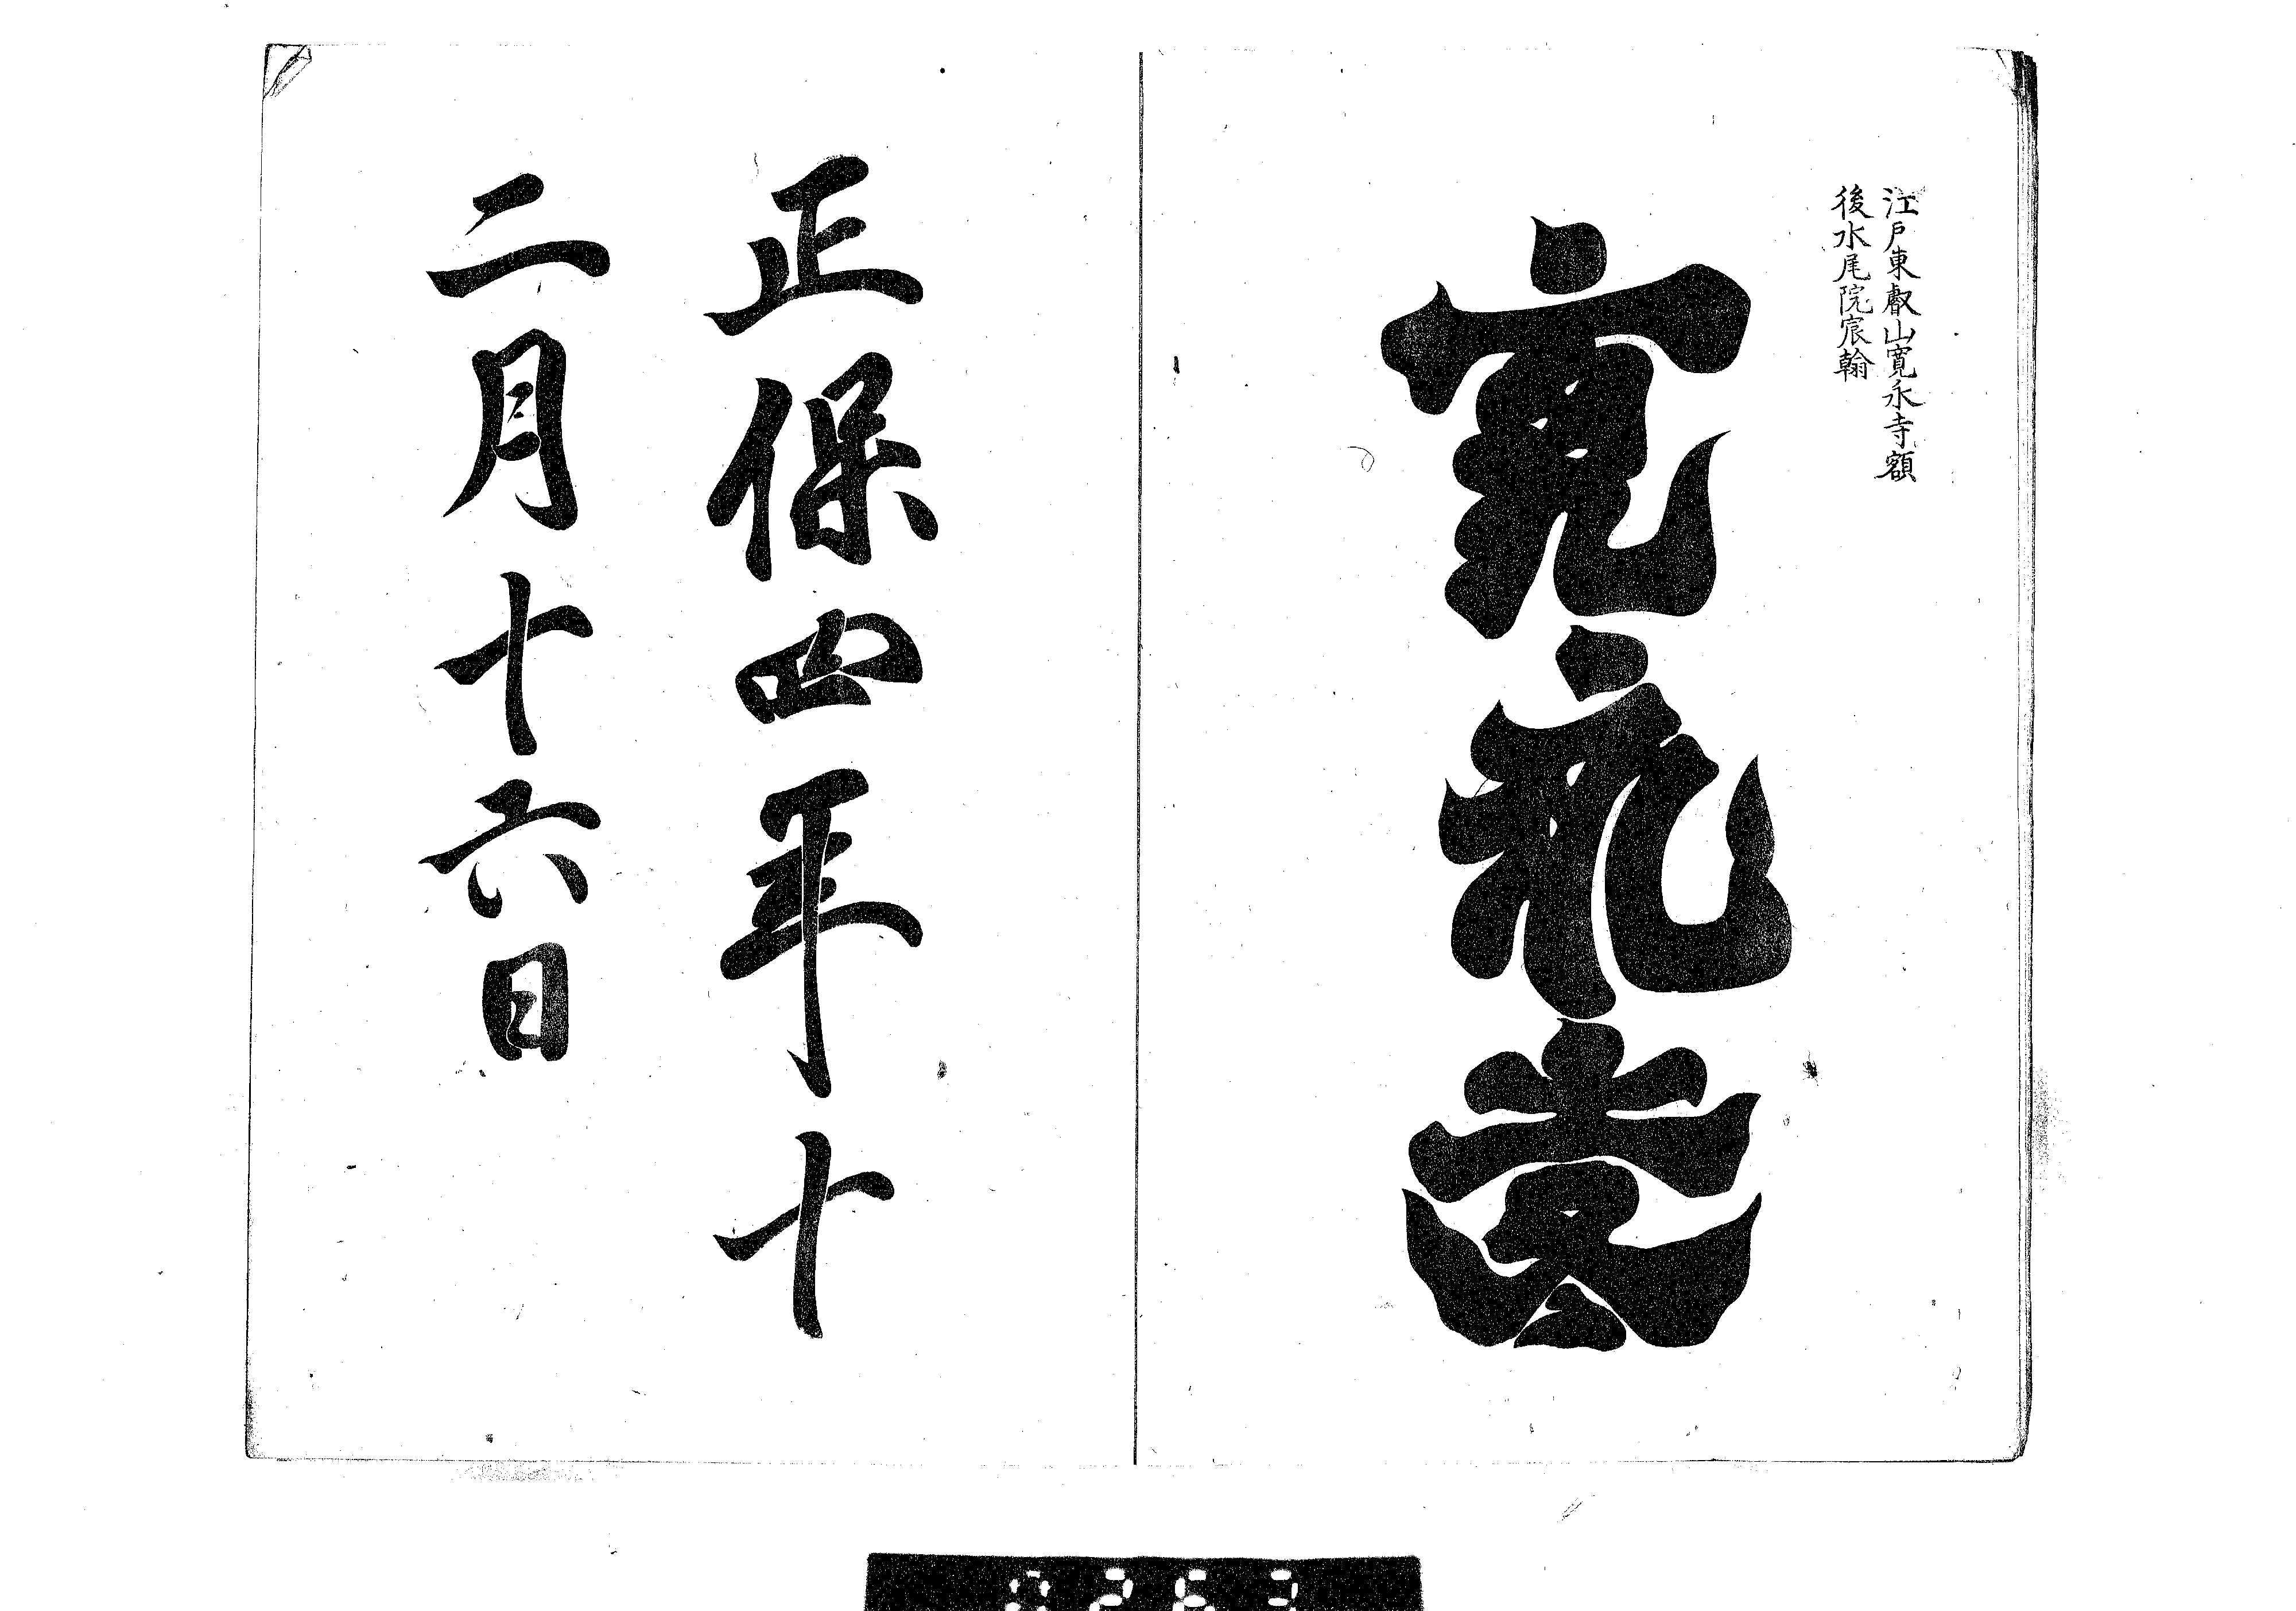 江戸東叡山寛永寺額
後水尾院宸翰
寛永寺
正保四年十
二月十六日